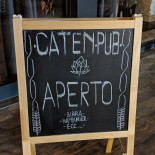 ·CATEN·PUB·
APERTO
·BIRRA·
·HAMBURGER·
·ECC...·